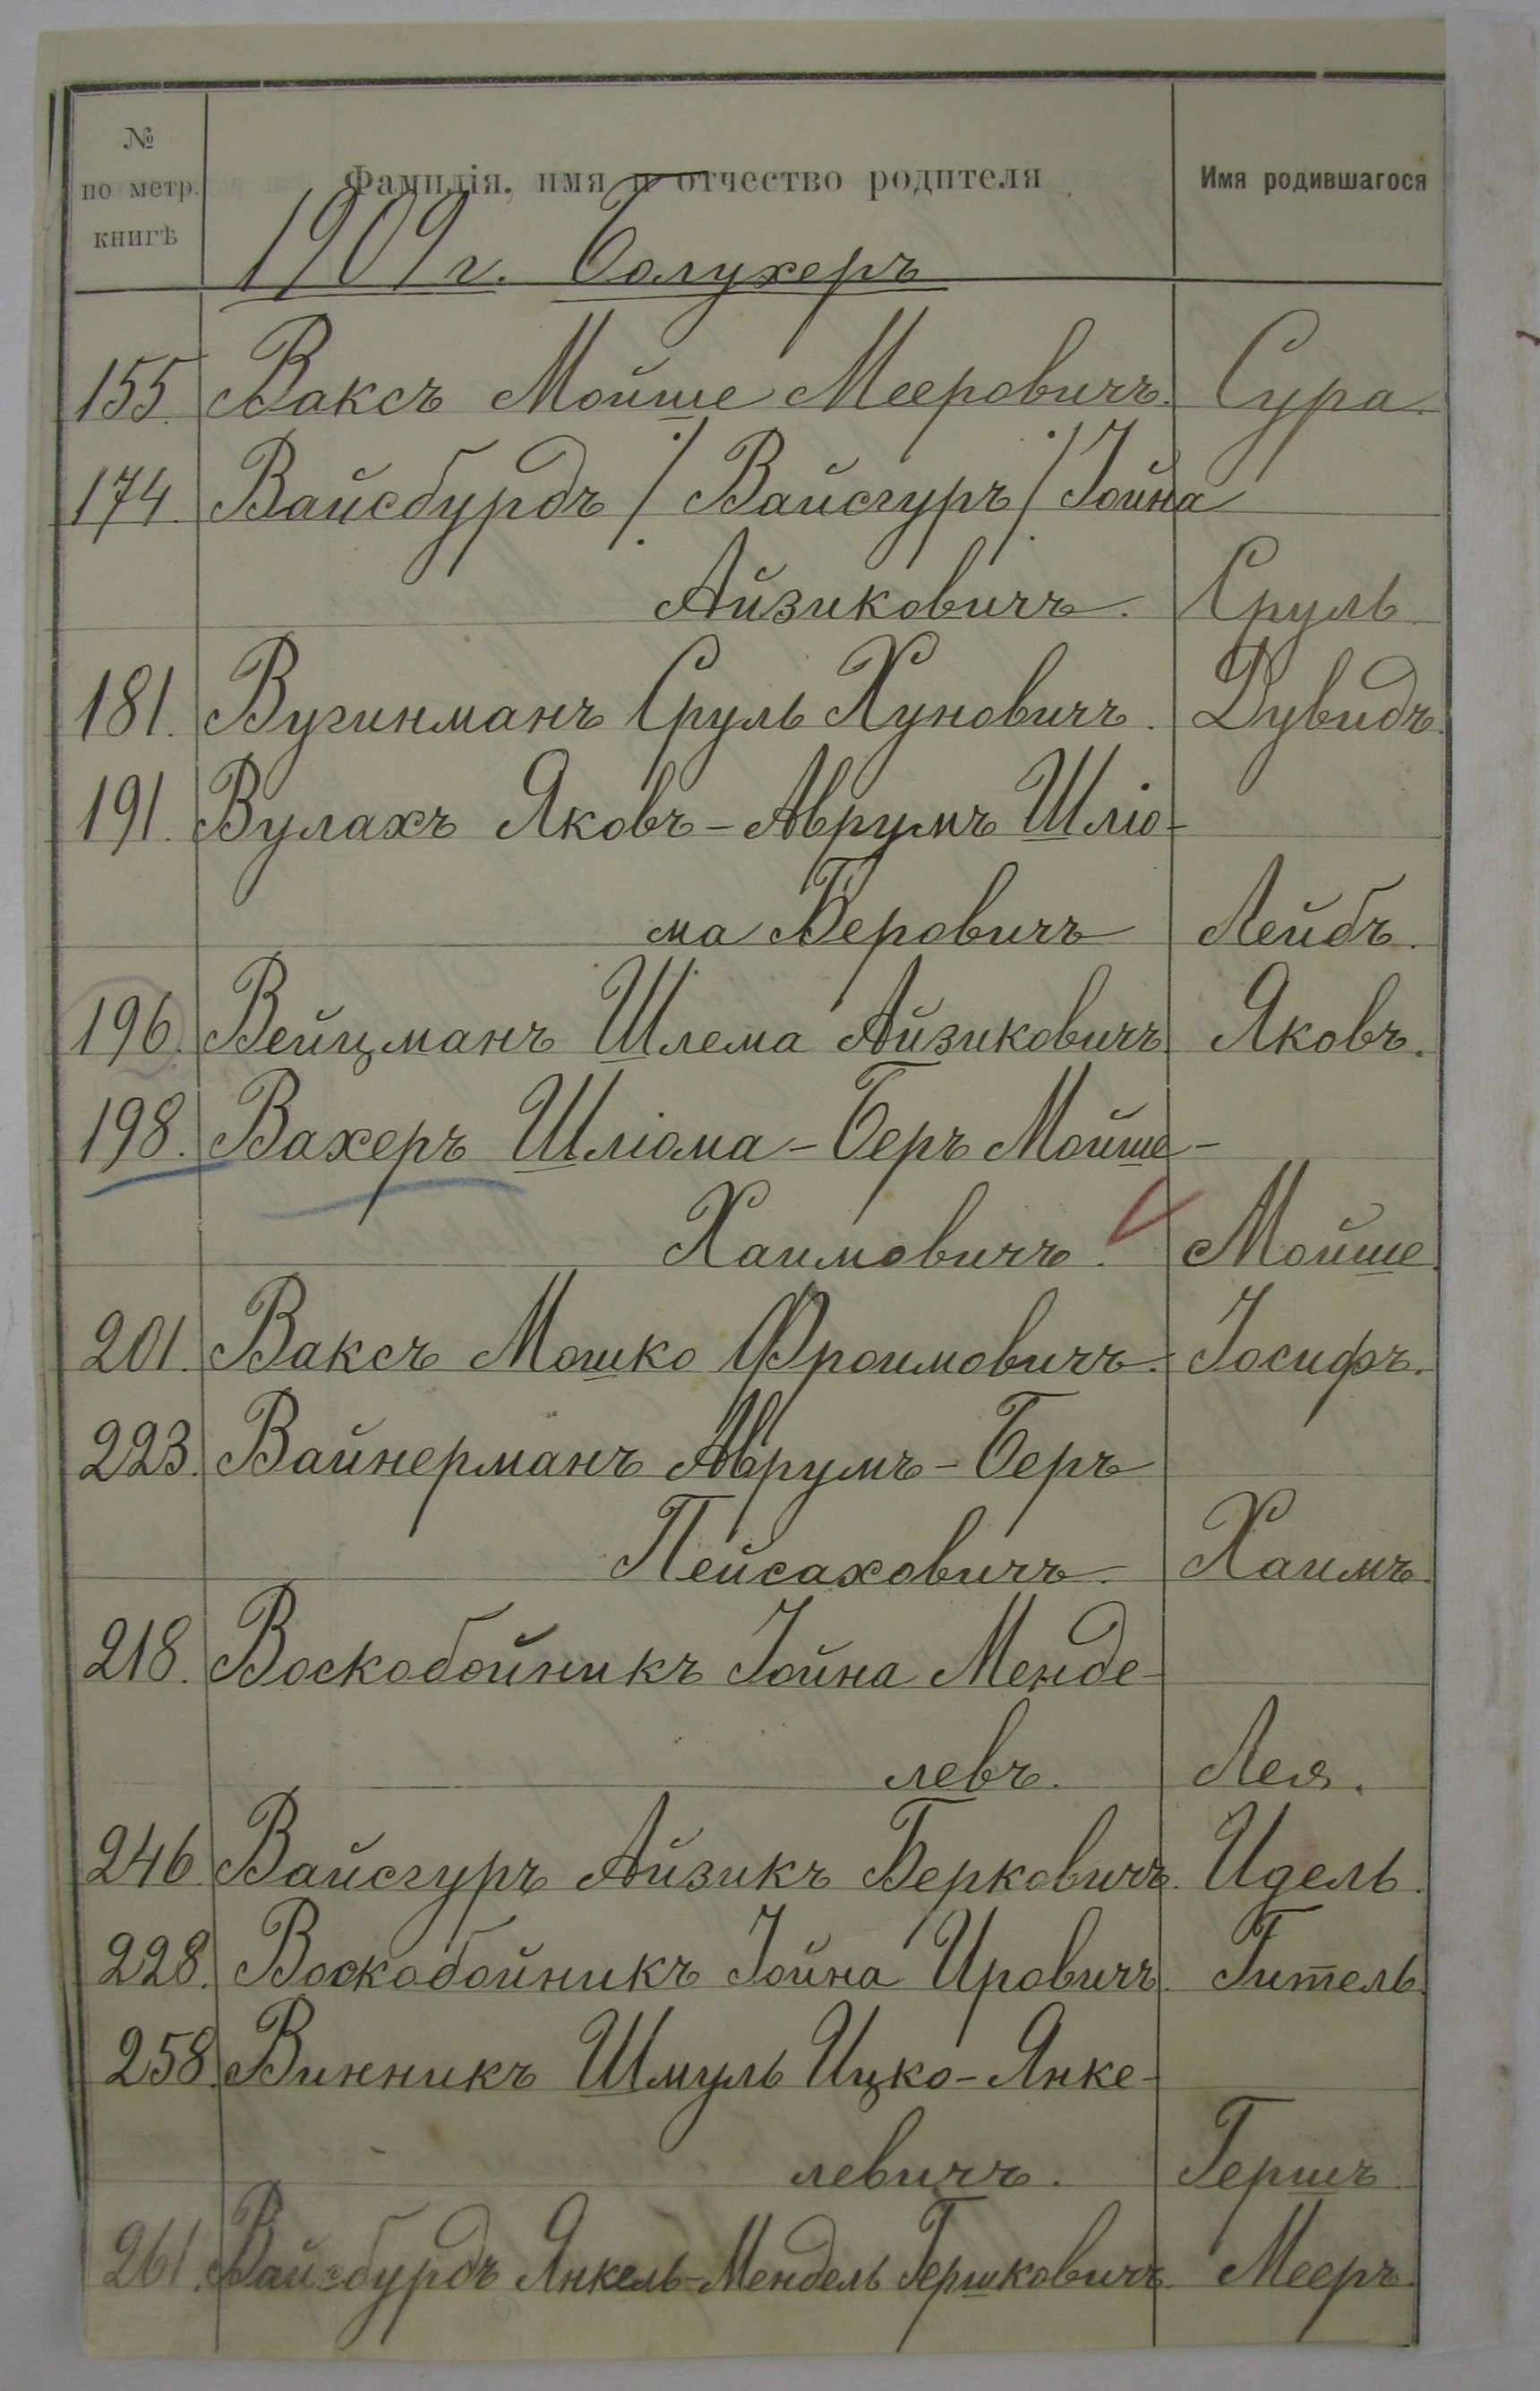 № по метр. книгѣ Фамилія, имя и отчество родителя Имя родившагося
1909 г. Болухеръ
155. Ваксъ Мойше Мееровичъ. Сура.
174. Вайсбурдъ /Вайсгуръ/ Іойна
Айзиковичъ. Сруль
181. Вугинманъ Сруль Хуновичъ. Дувидъ.
191. Вулахъ Яковъ-Аврумъ Шліо-
ма Беровичъ Лейбъ.
196. Вейцманъ Шлема Айзиковичъ Яковъ.
198. Вахеръ Шліома-Беръ Мойше-
Хаимовичъ. Мойше.
201. Ваксъ Мошко Фроимовичъ. Іосифъ.
223. Вайнерманъ Аврумъ-Беръ
Пейсаховичъ. Хаимъ.
218. Воскобойникъ Іойна Менде-
левъ. Лея.
246. Вайсгуръ Айзикъ Берковичъ. Идель.
228. Воскобойникъ Іойна Ировичъ. Гитель.
258. Винникъ Шмуль Ицко-Янке-
левичъ. Гершъ
261. Вайсбурдъ Янкель-Мендель Гершковичъ. Мееръ.